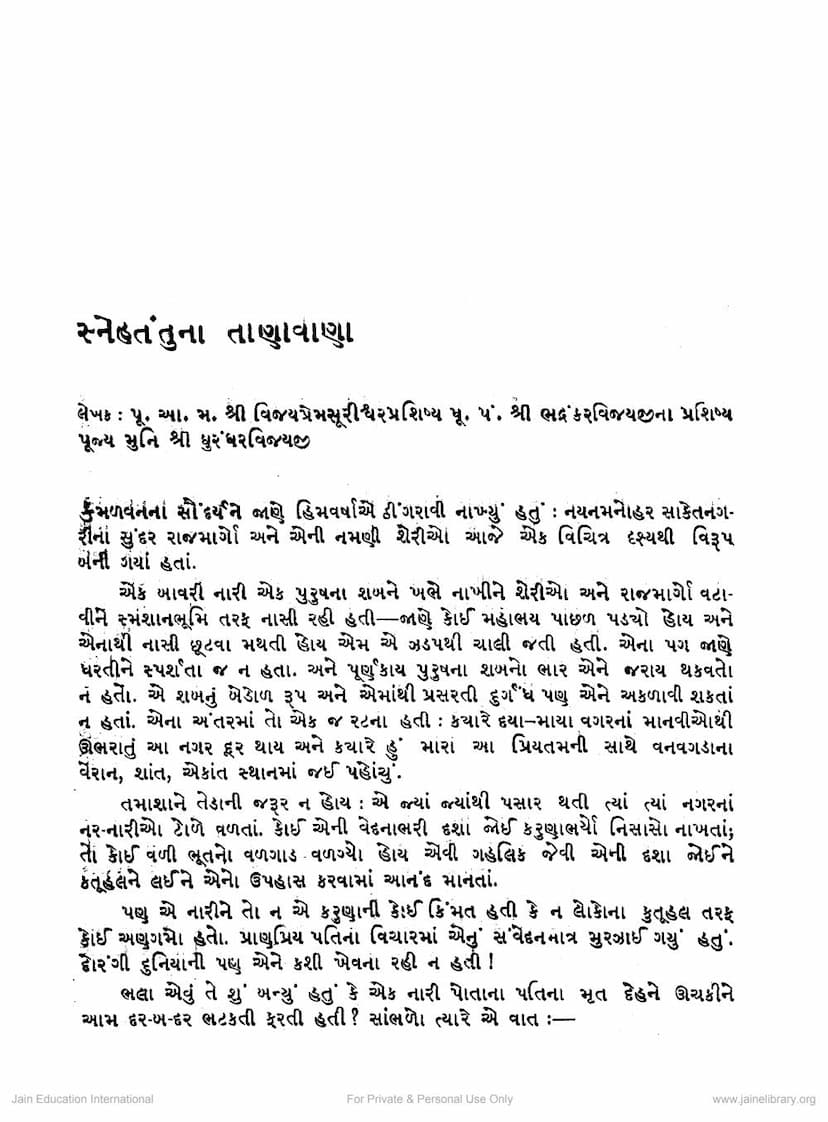 સ્નેહતંતુના તાણાવાણા
લેખક : પૂ. આ. મ. શ્રી વિજયપ્રેમસૂરીશ્વરપ્રશિષ્ય પૂ. પં. શ્રી ભદ્રંકરવિજયજીના પ્રશિષ્ય
પૂજ્ય મુનિ શ્રી ધુરંધરવિજયજી
કમળવનના સૌંદર્યને જાણે હિમવર્ષાએ ઠીંગરાવી નાખ્યું હતું : નયનમનોહર સાકેતનગ-
રીના સુંદર રાજમાર્ગો અને એની નમણી શેરીઓ આજે એક વિચિત્ર દૃશ્યથી વિરૂપ
બની ગયાં હતાં.
એક બાવરી નારી એક પુરુષના શબને ખભે નાખીને શેરીઓ અને રાજમાર્ગો વટા-
વીને સ્મશાનભૂમિ તરફ નાસી રહી હતી—જાણે કોઈ મહાભય પાછળ પડ્યો હોય અને
એનાથી નાસી છૂટવા મથતી હોય એમ એ ઝડપથી ચાલી જતી હતી. એના પગ જાણે
ધરતીને સ્પર્શતા જ ન હતા. અને પૂર્ણકાય પુરુષના શબનો ભાર એને જરાય થકવતો
ન હતો. એ શબનું બેડોળ રૂપ અને એમાંથી પ્રસરતી દુર્ગંધ પણ એને અકળાવી શકતાં
ન હતાં. એના અંતરમાં તો એક જ રટના હતી : ક્યારે દયા–માયા વગરનાં માનવીઓથી
ઊભરાતું આ નગર દૂર થાય અને ક્યારે હું મારા આ પ્રિયતમની સાથે વનવગડાના
વેરાન, શાંત, એકાંત સ્થાનમાં જઈ પહોંચું.
તમાશાને તેડાની જરૂર ન હોય : એ જ્યાં જ્યાંથી પસાર થતી ત્યાં ત્યાં નગરનાં
નર-નારીઓ ટોળે વળતાં. કોઈ એની વેદનાભરી દશા જોઈ કરુણાભર્યો નિસાસો નાખતાં;
તો કોઈ વળી ભૂતનો વળગાડ વળગ્યો હોય એવી ગહલિક જેવી એની દશા જોઈને
કુતૂહલને લઈને એનો ઉપહાસ કરવામાં આનંદ માનતાં.
પણ એ નારીને તો ન એ કરુણાની કોઈ કિંમત હતી કે ન લોકોના કુતૂહલ તરફ
કોઈ અણગમો હતો. પ્રાણપ્રિય પતિના વિચારમાં એનું સંવેદનમાત્ર મુરઝાઈ ગયું હતું.
દોરંગી દુનિયાની પણ એને કશી ખેવના રહી ન હતી !
ભલા એવું તે શું બન્યું હતું કે એક નારી પોતાના પતિના મૃત દેહને ઊચકીને
આમ દર-બ-દર ભટકતી ફરતી હતી? સાંભળો ત્યારે એ વાત :—
Jain Education International
For Private & Personal Use Only
www.jainelibrary.org